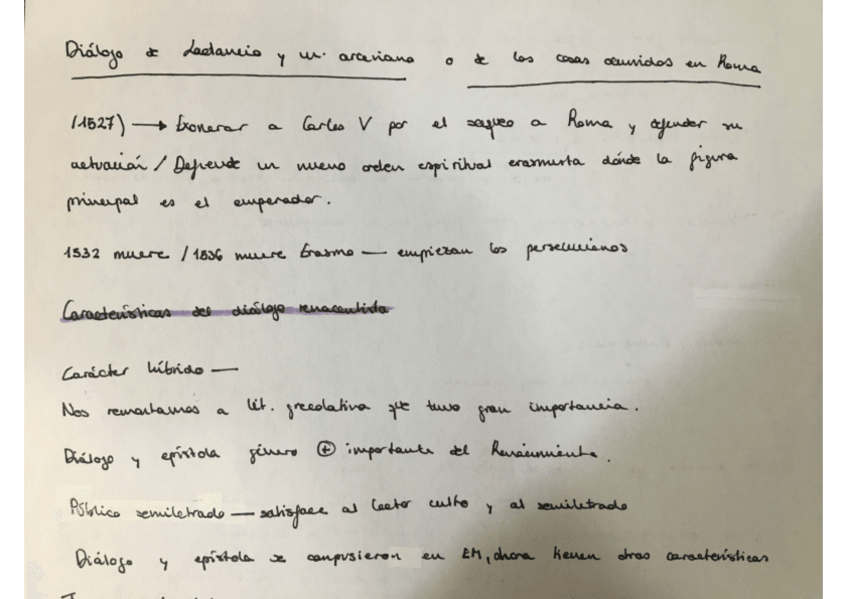 Diálogo de Lactancio y un arcediano o de las cosas ocurridas en Roma
(1527) → Exonerar a Carlos V por el saqueo a Roma y defender su
actuación / Defiende un nuevo orden espiritual erasmista dónde la figura
principal es el emperador.
1532 muere / 1536 muere Erasmo — empiezan las persecuciones
Características del diálogo renacentista
Carácter híbrido —
Nos remontamos a lit. grecolatina que tuvo gran importancia.
Diálogo y epístola género ⊕ importante del Renacimiento.
Público semiletrado — satisface al lector culto y al semiletrado
Diálogo y epístola se compusieron en EM, ahora tienen otras características